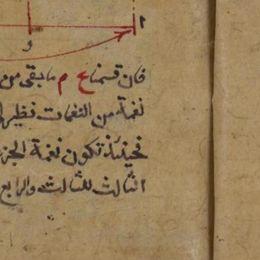 ا
و
فان قسمنا ع م ما بقى من
نغمة من النغمات فنظير
فحينئذ تكون نغمة الجز
الثالث للثالث والرابع